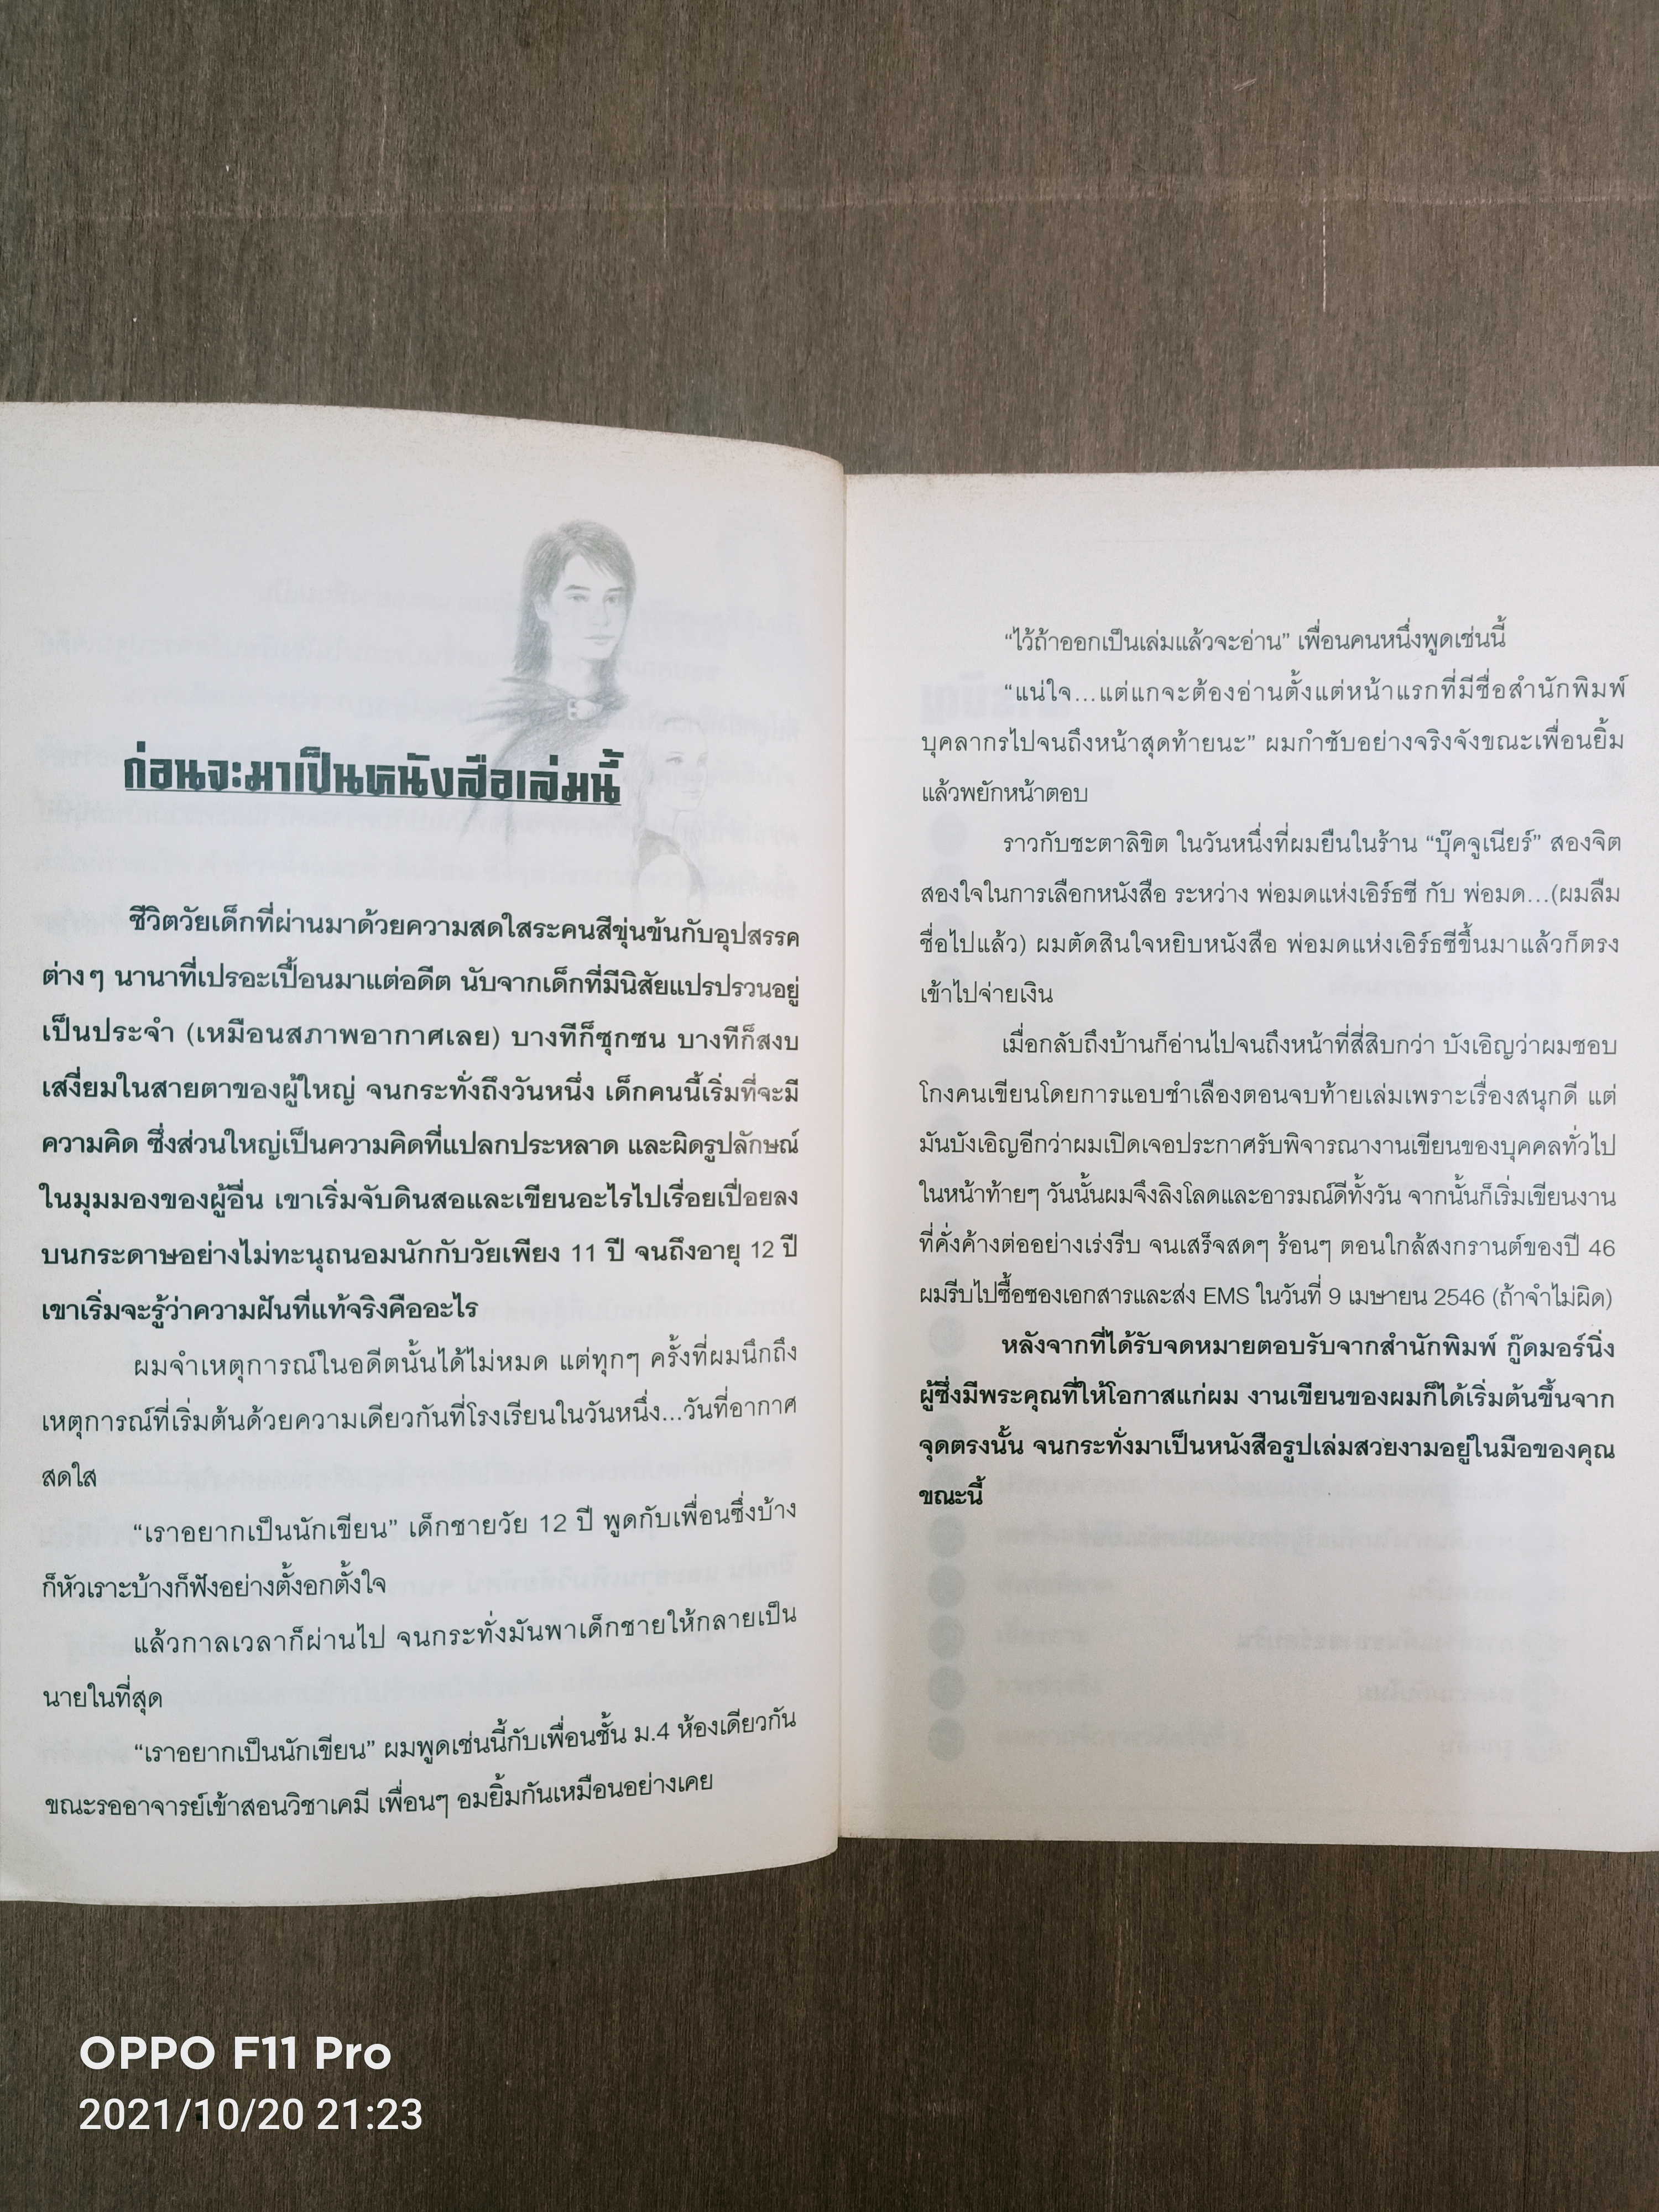 ก่อนจะมาเป็นหนังสือเล่มนี้
ชีวิตวัยเด็กที่ผ่านมาด้วยความสดใสระคนสีขุ่นข้นกับอุปสรรค
ต่างๆ นานาที่เปรอะเปื้อนมาแต่อดีต นับจากเด็กที่มีนิสัยแปรปรวนอยู่
เป็นประจำ (เหมือนสภาพอากาศเลย) บางทีก็ซุกซน บางทีก็สงบ
เสงี่ยมในสายตาของผู้ใหญ่ จนกระทั่งถึงวันหนึ่ง เด็กคนนี้เริ่มที่จะมี
ความคิด ซึ่งส่วนใหญ่เป็นความคิดที่แปลกประหลาด และผิดรูปลักษณ์
ในมุมมองของผู้อื่น เขาเริ่มจับดินสอและเขียนอะไรไปเรื่อยเปื่อยลง
บนกระดาษอย่างไม่ทะนุถนอมนักกับวัยเพียง 11 ปี จนถึงอายุ 12 ปี
เขาเริ่มจะรู้ว่าความฝันที่แท้จริงคืออะไร
ผมจำเหตุการณ์ในอดีตนั้นได้ไม่หมด แต่ทุกๆ ครั้งที่ผมนึกถึง
เหตุการณ์ที่เริ่มต้นด้วยความเดียวกันที่โรงเรียนในวันหนึ่ง...วันที่อากาศ
สดใส
“เราอยากเป็นนักเขียน” เด็กชายวัย 12 ปี พูดกับเพื่อนซึ่งบ้าง
ก็หัวเราะบ้างก็ฟังอย่างตั้งอกตั้งใจ
แล้วกาลเวลาก็ผ่านไป จนกระทั่งมันพาเด็กชายให้กลายเป็น
นายในที่สุด
“เราอยากเป็นนักเขียน” ผมพูดเช่นนี้กับเพื่อนชั้น ม.4 ห้องเดียวกัน
ขณะรออาจารย์เข้าสอนวิชาเคมี เพื่อนๆ อมยิ้มกันเหมือนอย่างเคย
“ไว้ถ้าออกเป็นเล่มแล้วจะอ่าน” เพื่อนคนหนึ่งพูดเช่นนี้
“แน่ใจ...แต่แกจะต้องอ่านตั้งแต่หน้าแรกที่มีชื่อสำนักพิมพ์
บุคลากรไปจนถึงหน้าสุดท้ายนะ” ผมกำชับอย่างจริงจังขณะเพื่อนยิ้ม
แล้วพยักหน้าตอบ
ราวกับชะตาลิขิต ในวันหนึ่งที่ผมยืนในร้าน “บุ๊คจูเนียร์” สองจิต
สองใจในการเลือกหนังสือ ระหว่าง พ่อมดแห่งเอิร์ธซี กับ พ่อมด...(ผมลืม
ชื่อไปแล้ว) ผมตัดสินใจหยิบหนังสือ พ่อมดแห่งเอิร์ธซีขึ้นมาแล้วก็ตรง
เข้าไปจ่ายเงิน
เมื่อกลับถึงบ้านก็อ่านไปจนถึงหน้าที่สี่สิบกว่า บังเอิญว่าผมชอบ
โกงคนเขียนโดยการแอบชำเลืองตอนจบท้ายเล่มเพราะเรื่องสนุกดี แต่
มันบังเอิญอีกว่าผมเปิดเจอประกาศรับพิจารณางานเขียนของบุคคลทั่วไป
ในหน้าท้ายๆ วันนั้นผมจึงลิงโลดและอารมณ์ดีทั้งวัน จากนั้นก็เริ่มเขียนงาน
ที่คั่งค้างต่ออย่างเร่งรีบ จนเสร็จสดๆ ร้อนๆ ตอนใกล้สงกรานต์ของปี 46
ผมรีบไปซื้อซองเอกสารและส่ง EMS ในวันที่ 9 เมษายน 2546 (ถ้าจำไม่ผิด)
หลังจากที่ได้รับจดหมายตอบรับจากสำนักพิมพ์ กู๊ดมอร์นิ่ง
ผู้ซึ่งมีพระคุณที่ให้โอกาสแก่ผม งานเขียนของผมก็ได้เริ่มต้นขึ้นจาก
จุดตรงนั้น จนกระทั่งมาเป็นหนังสือรูปเล่มสวยงามอยู่ในมือของคุณ
ขณะนี้
OPPO F11 Pro
2021/10/20 21:23